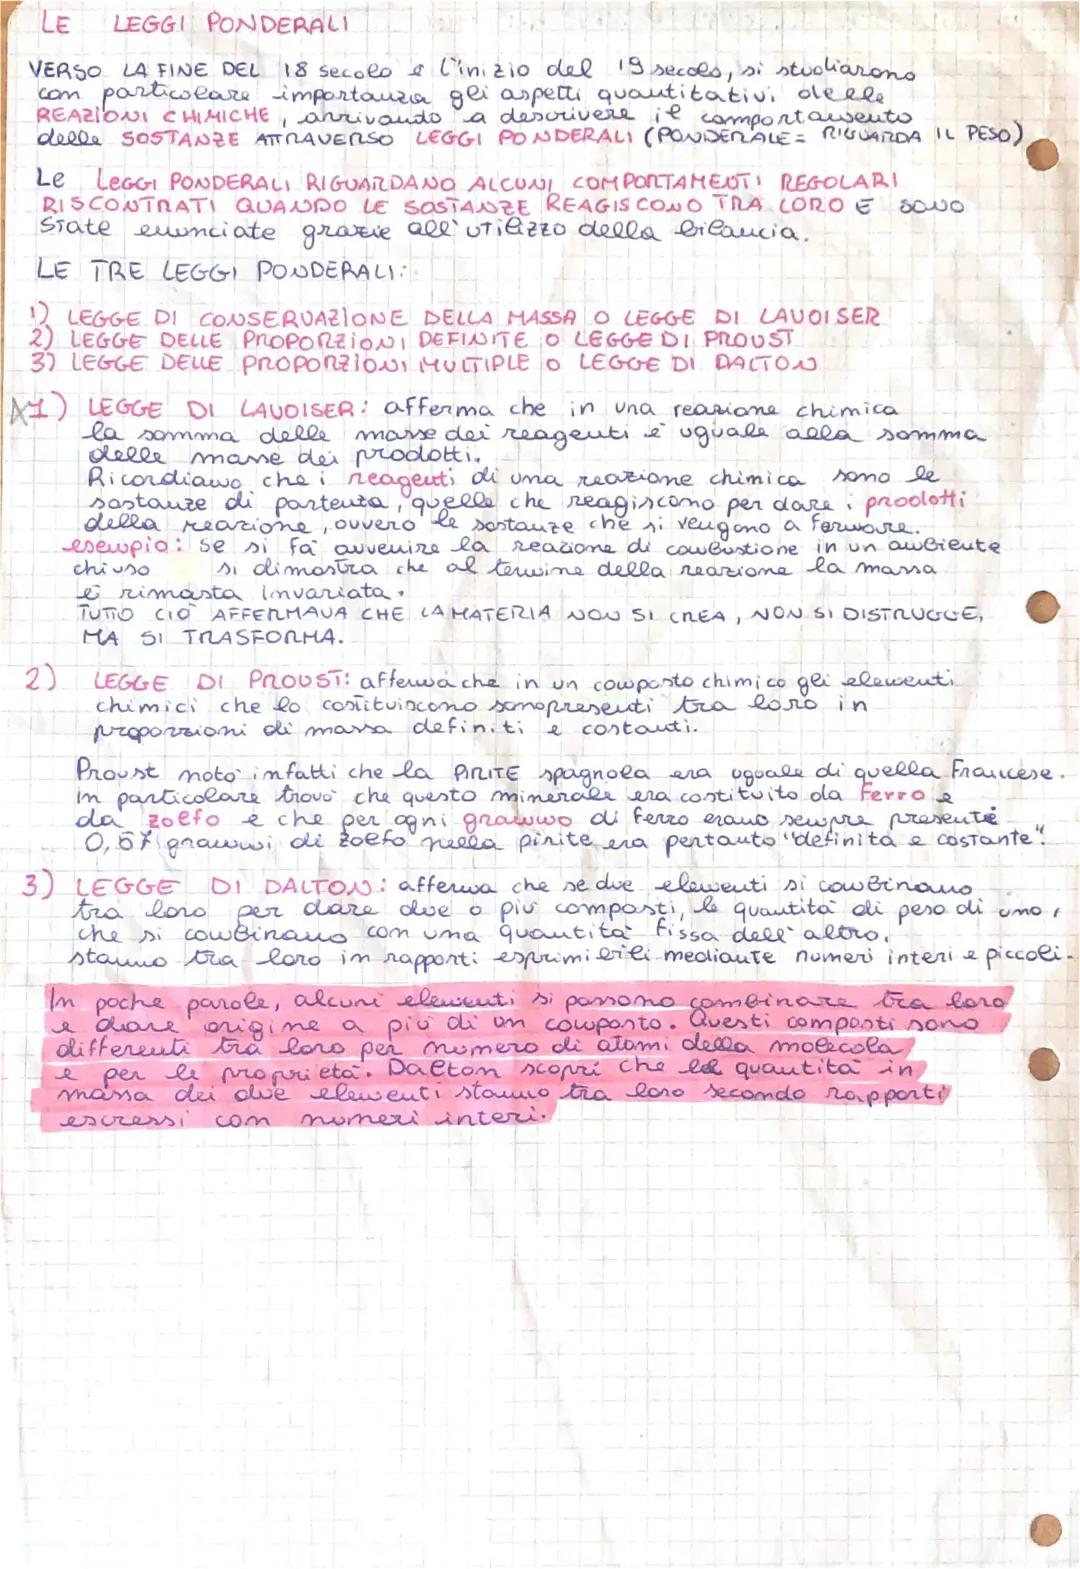 LE LEGGI PONDERALI
VERSO LA FINE DEL 18 secolo e l'inizio del 19 secolo, si studiarono
con particolare importanza gli aspetti quantitativi delle
REAZIONI CHIMICHE, arrivando a descrivere il comportamento
delle SOSTANZE ATTRAVERSO LEGGI PONDERALI (PONDERALE= RIGUARDA IL PESO)
Le LEGGI PONDERALI RIGUARDANO ALCUNI COMPORTAMENTI REGOLARI
RISCONTRATI QUANDO LE SOSTANZE REAGISCONO TRA LORO E SONO
State enunciate grazie all'utilizzo della bilancia.
LE TRE LEGGI PONDERALI:
1) LEGGE DI CONSERVAZIONE DELLA MASSA O LEGGE DI LAVOISER
2) LEGGE DELLE PROPORZIONI DEFINITE O LEGGE DI PROUST
3) LEGGE DELLE PROPORZIONI MULTIPLE O LEGGE DI DALTON
1) LEGGE DI LAVOISER: afferma che in una reazione chimica
la somma delle masse dei reagenti è uguale alla somma
delle masse dei prodotti.
Ricordiamo che i reagenti di una reazione chimica sono le
sostanze di partenza, quelle che reagiscono per dare i prodotti
della reazione, ovvero le sostanze che si vengono a formare.
esempio: se si fa avvenire la reazione di combustione in un ambiente
chiuso si dimostra che al termine della reazione la massa
è rimasta invariata.
TUTTO CIÒ AFFERMAVA CHE LA MATERIA NON SI CREA, NON SI DISTRUGGE,
MA SI TRASFORMA.
2) LEGGE DI PROUST: afferma che in un composto chimico gli elementi
chimici che lo costituiscono sono presenti tra loro in
proporzioni di massa definiti e costanti.
Proust notò infatti che la PIRITE spagnola era uguale di quella Francese.
in particolare trovò che questo minerale era costituito da Ferro e
da zolfo e che per ogni grammo di ferro erano sempre presente
0,57 grammi di zolfo nella pirite era pertanto "definita e costante".
3) LEGGE DI DALTON: afferma che se due elementi si combinano
tra loro per dare due o più composti, le quantità di peso di uno,
che si combinano con una quantità fissa dell'altro,
stanno tra loro in rapporti esprimibili mediante numeri interi e piccoli.
In poche parole, alcuni elementi si possono combinare tra loro
e dare origine a più di un composto. Questi composti sono
differenti tra loro per numero di atomi della molecola
e per le proprietà. Dalton scoprí che le quantità in
massa dei due elementi stanno tra loro secondo rapporti
escressi con numeri interi.